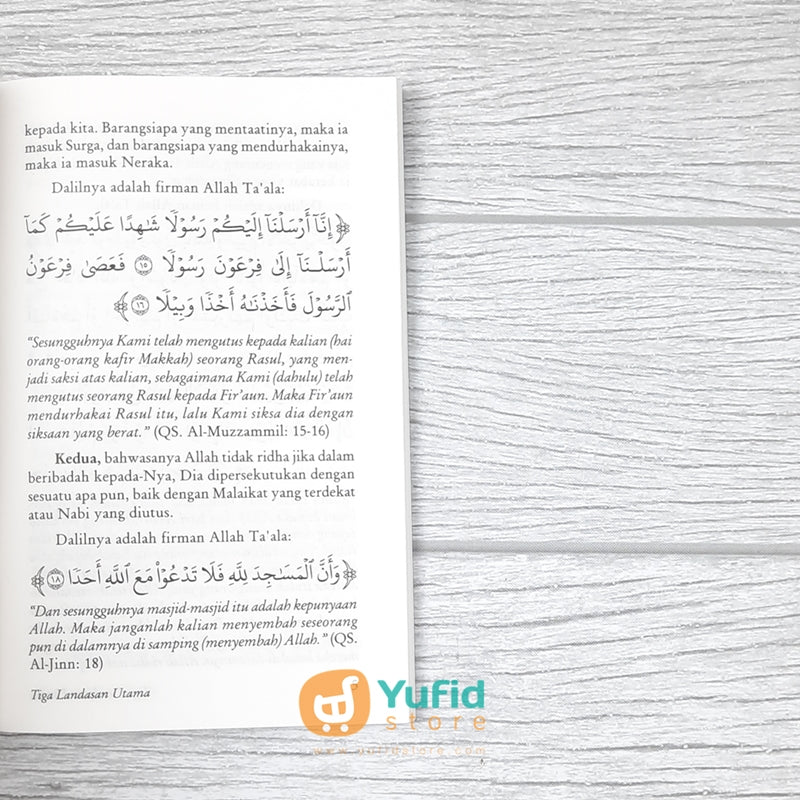 kepada kita. Barangsiapa yang mentaatinya, maka ia
masuk Surga, dan barangsiapa yang mendurhakainya,
maka ia masuk Neraka.
Dalilnya adalah firman Allah Ta'ala:
﴿إِنَّآ أَرْسَلْنَآ إِلَيْكُمْ رَسُولًا شَٰهِدًا عَلَيْكُمْ كَمَآ
أَرْسَلْنَآ إِلَىٰ فِرْعَوْنَ رَسُولًا ۝١٥ فَعَصَىٰ فِرْعَوْنُ
ٱلرَّسُولَ فَأَخَذْنَٰهُ أَخْذًا وَبِيلًا ۝١٦﴾
“Sesungguhnya Kami telah mengutus kepada kalian (hai
orang-orang kafir Makkah) seorang Rasul, yang men-
jadi saksi atas kalian, sebagaimana Kami (dahulu) telah
mengutus seorang Rasul kepada Fir'aun. Maka Fir'aun
mendurhakai Rasul itu, lalu Kami siksa dia dengan
siksaan yang berat.” (QS. Al-Muzzammil: 15-16)
Kedua, bahwasanya Allah tidak ridha jika dalam
beribadah kepada-Nya, Dia dipersekutukan dengan
sesuatu apa pun, baik dengan Malaikat yang terdekat
atau Nabi yang diutus.
Dalilnya adalah firman Allah Ta'ala:
﴿وَأَنَّ ٱلْمَسَٰجِدَ لِلَّهِ فَلَا تَدْعُوا۟ مَعَ ٱللَّهِ أَحَدًا ۝١٨﴾
“Dan sesungguhnya masjid-masjid itu adalah kepunyaan
Allah. Maka janganlah kalian menyembah seseorang
pun di dalamnya di samping (menyembah) Allah.” (QS.
Al-Jinn: 18)
Tiga Landasan Utama
Yufid
store
www.yufidstore.com